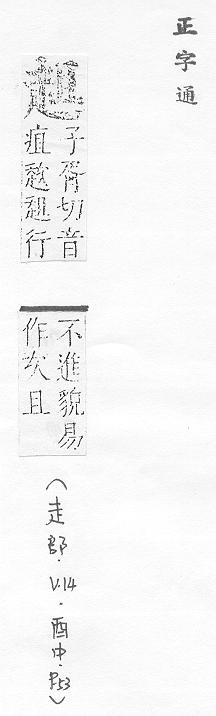 正字通
趄
子胥切音
疽趑趄行
不進貌易
作次且
(走部.V.14.酉中.P.53)